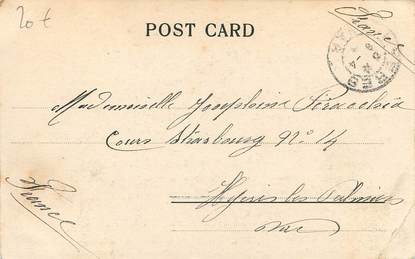 20 €
France
POST CARD
Mademoiselle Joséphine
Cours Strasbourg Nº 14
France
Hyères les Palmiers
Var